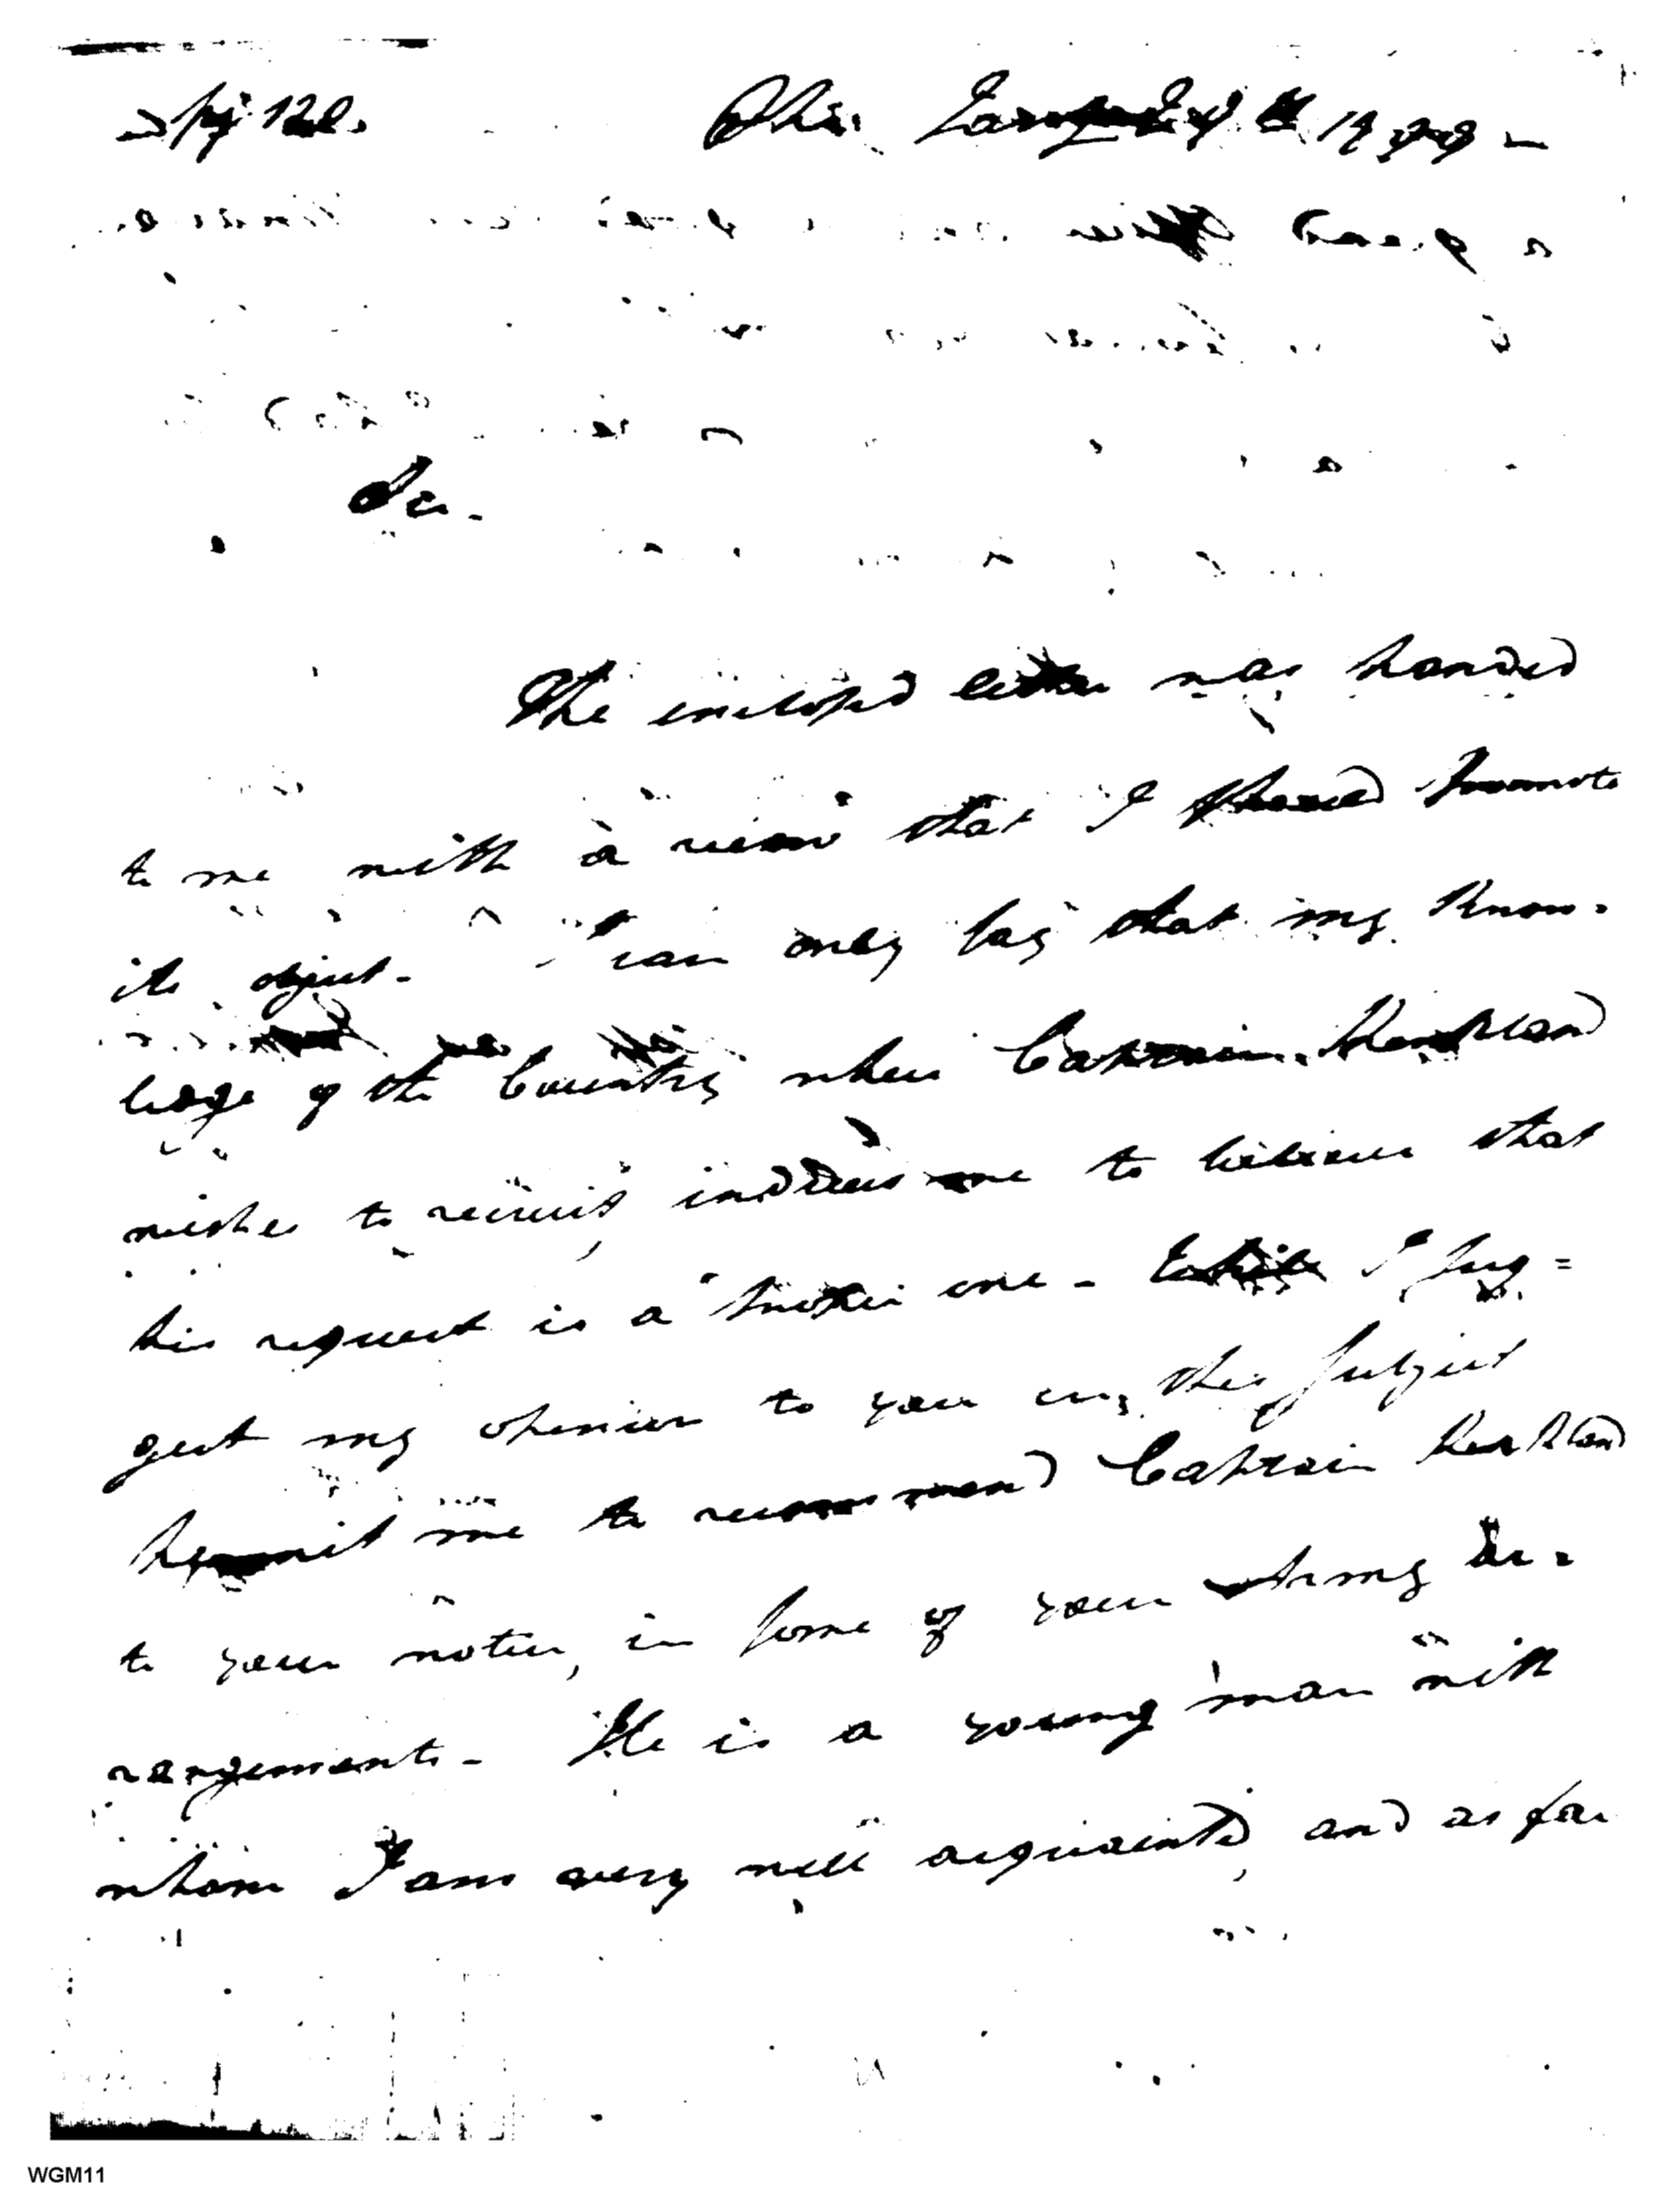 Sir.
The inclosed letter was handed
to me with a view that I should promote
its object. I can only say that my know-
ledge of the Country where Captain
wishes to recruit, induces me to believe that
his request is a proper one - I sug=
gest my opinion to you on this subject
permit me to recommend Captain
to your notice, in some of your Army ar-
rangements - He is a young man with
whom I am very well acquainted, and as far
WGM11